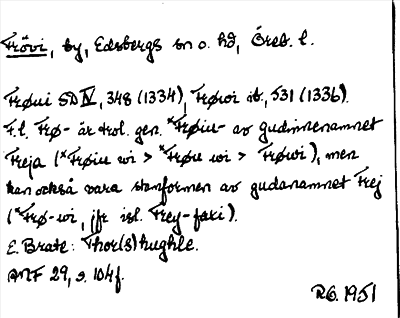 Frövi, by, Edsbergs sn o. hd, Öreb. l.
Frøui SD IV, 348 (1334), Frøwi ib., 531 (1336).
F.l. Frø- är trol. gen. *Frøiu- av gudinnenamnet
Freja (*Frøiu wi > *Frøu wi > Frøwi), men
kan också vara stamformen av gudanamnet Frej
(*Frø-wi, jfr isl. Frey-faxi).
E. Brate: Thor(s)hughle.
ANF 29, s. 104f.
RG. 1951